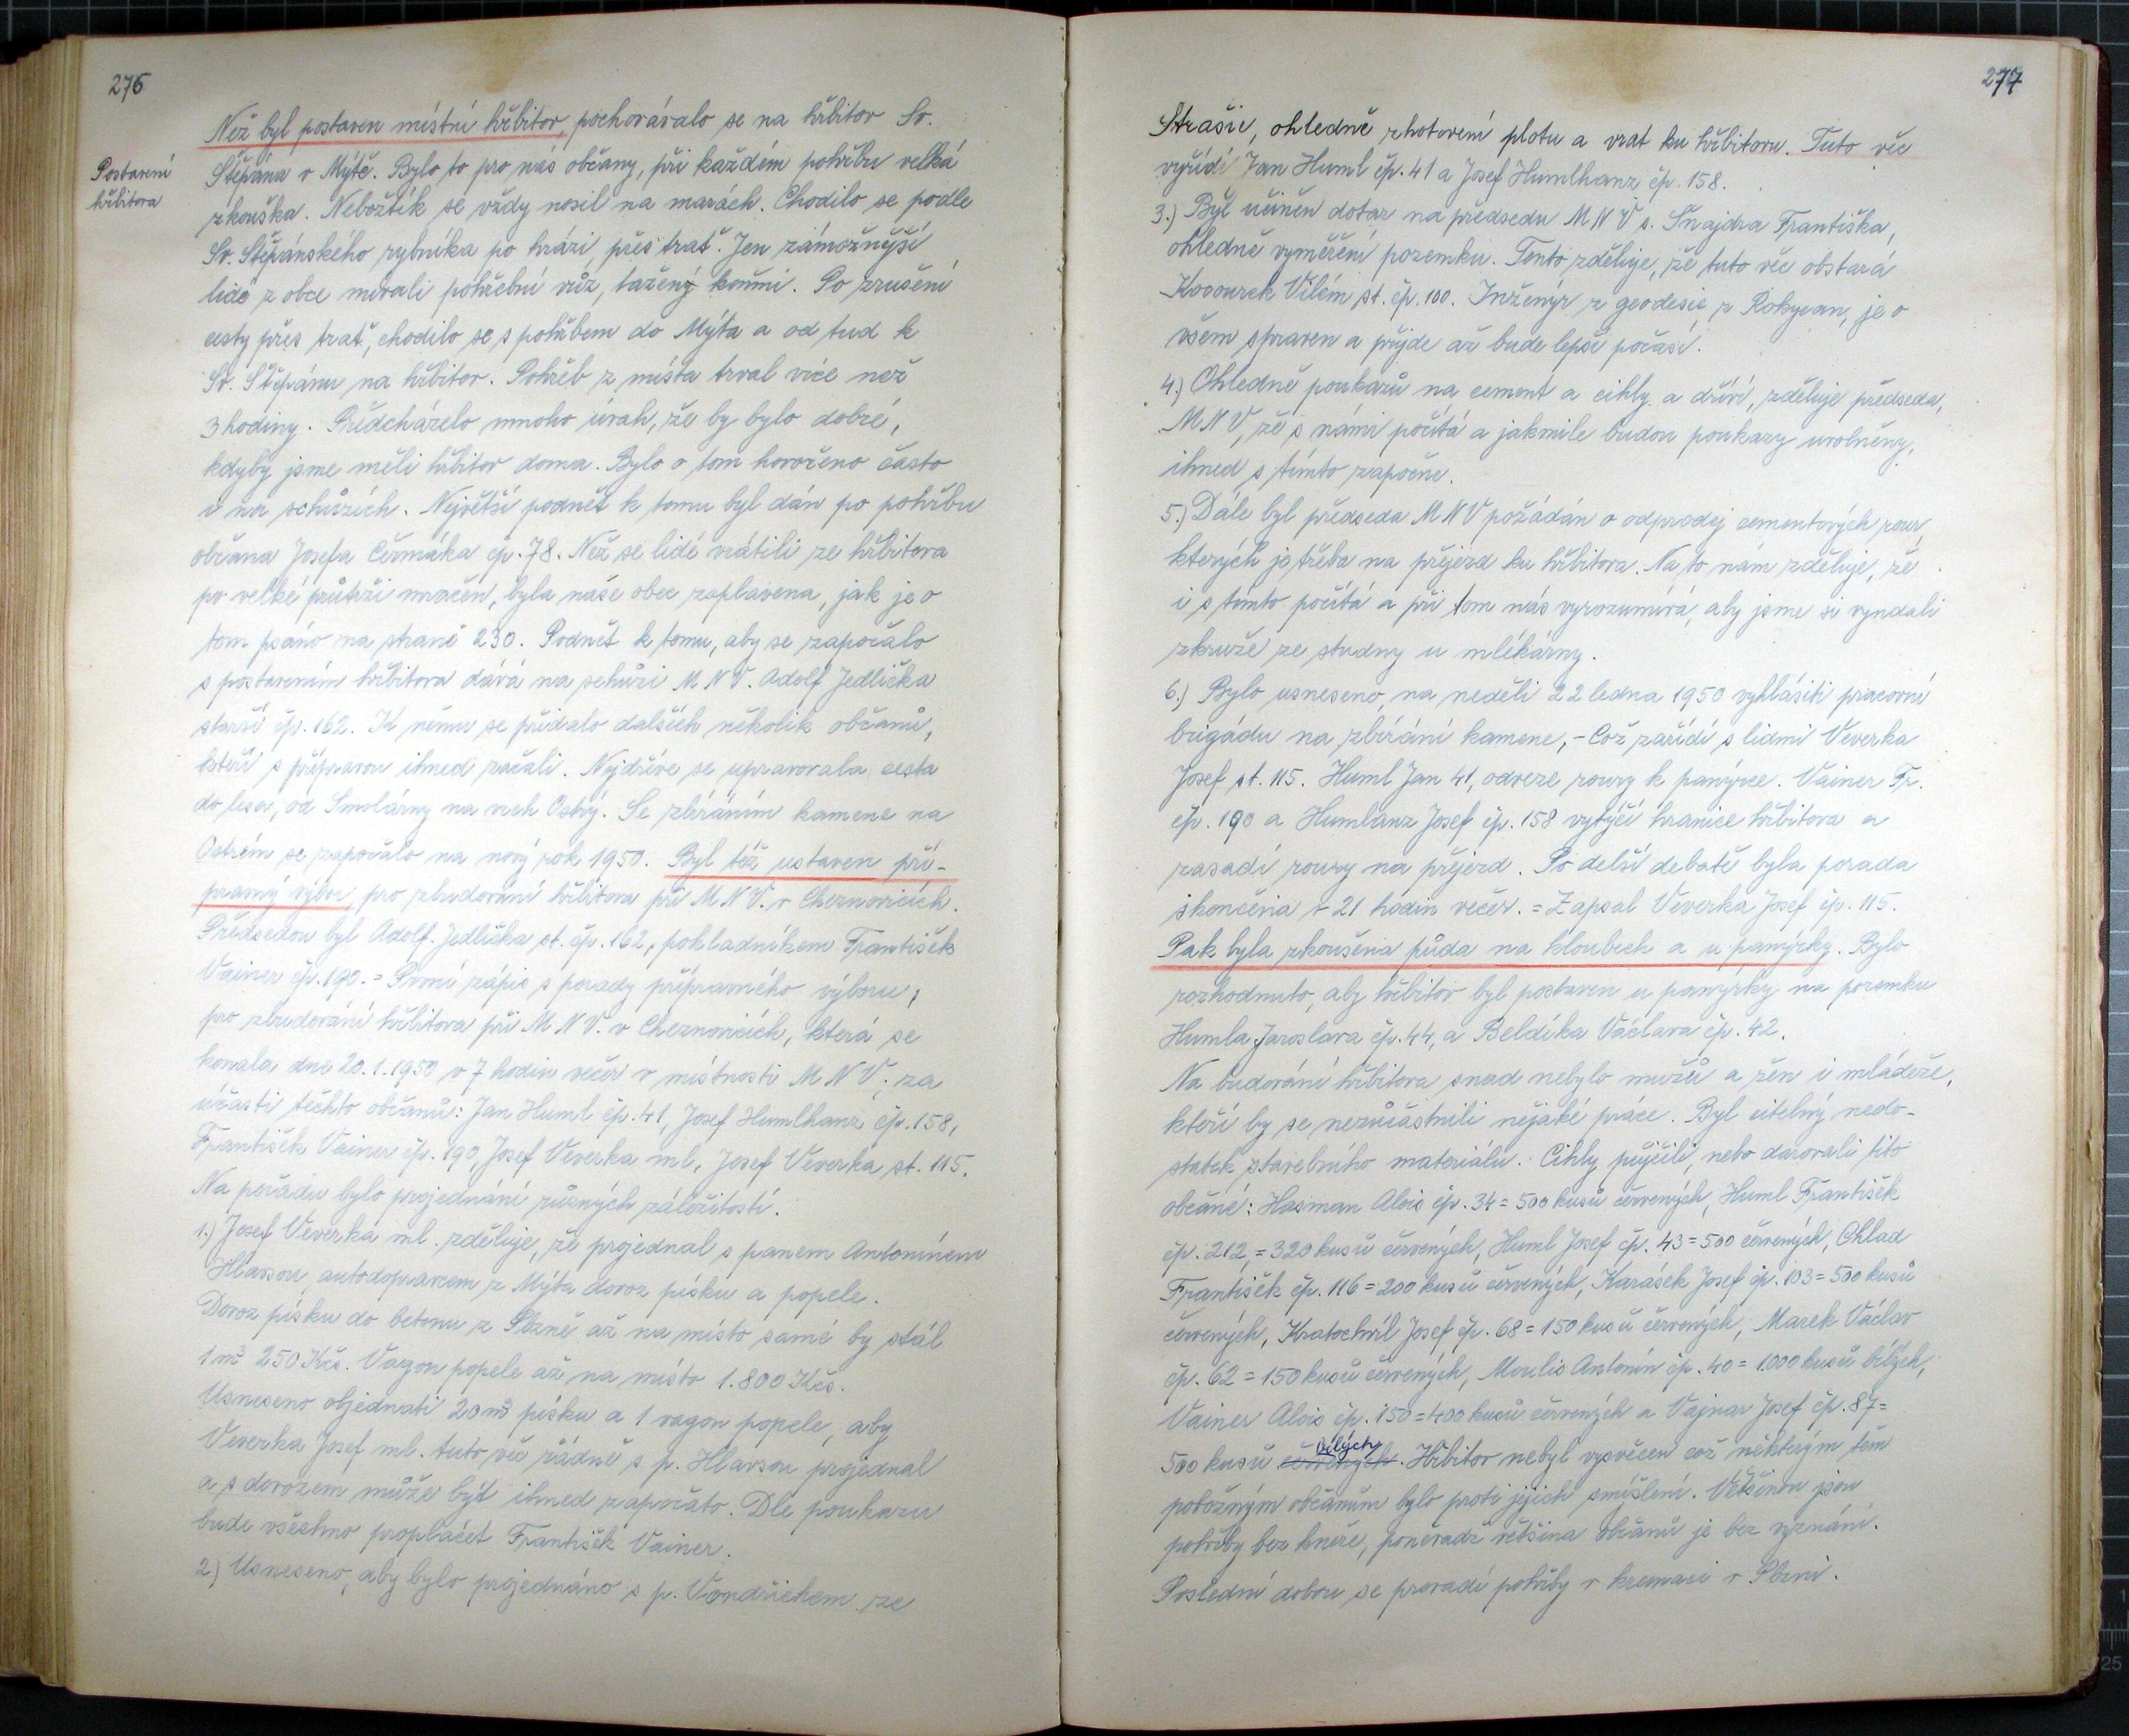 276
Než byl postaven místní hřbitov, pochovávalo se na hřbitov Sv.
Postavení
hřbitova
Štěpána v Mýtě. Bylo to pro nás občany, při každém pohřbu velká
zkouška. Nebožtík se vždy nosil na marách. Chodilo se podle
Sv. Štěpánského rybníka po hrázi, přes trať. Jen zámožnější
lidé z obce mívali pohřební vůz, tažený koňmi. Po zrušení
cesty přes trať, chodilo se s pohřbem do Mýta a od tud k
Sv. Štěpánu na hřbitov. Pohřeb z místa trval více než
3 hodiny. Předcházelo mnoho úvah, že by bylo dobré,
kdyby jsme měli hřbitov doma. Bylo o tom hovořeno často
i na schůzích. Největší podnět k tomu byl dán po pohřbu
občana Josefa Čermáka čp. 78. Než se lidé vrátili ze hřbitova
po velké průtrži mračen, byla naše obec zaplavena, jak je o
tom psáno na straně 230. Podnět k tomu, aby se započalo
s postavením hřbitova dává na schůzi M N V. Adolf Jedlička
starší čp. 162. K němu se přidalo dalších několik občanů,
kteří s přípravou ihned začali. Nejdříve se upravovala cesta
do lesa, od Smolárny na vrch Ostrý. Se sbíráním kamene na
Ostrém se započalo na nový rok 1950. Byl též ustaven pří-
pravný výbor, pro zbudování hřbitova při M N V. v Cheznovicích.
Předsedou byl Adolf Jedlička st. čp. 162, pokladníkem František
Vainer čp. 190. = První zápis s porady přípravného výboru,
pro zbudování hřbitova při M N V. v Cheznovicích, která se
konala dne 20.1.1950 v 7 hodin večer v místnosti M N V. za
účasti těchto občanů: Jan Huml čp. 41, Josef Humlhanz čp. 158,
František Vainer čp. 190, Josef Veverka ml, Josef Veverka st. 115.
Na pořadu bylo projednání různých záležitostí.
1.) Josef Veverka ml. zděluje, že projednal s panem Antonínem
Hlavsou, autodopravcem z Mýta dovoz písku a popele.
Dovoz písku do betonu z Plzně až na místo samé by stál
1 m³ 250 Kčs. Vagon popele až na místo 1.800 Kčs.
Usneseno objednati 20 m³ písku a 1 vagon popele, aby
Veverka Josef ml. tuto věc řádně s p. Hlavsou projednal
a s dovozem může být ihned započato. Dle poukazu
bude všechno proplácet František Vainer.
2) Usneseno, aby bylo projednáno s p. Vondřichem ze
277
Strašic, ohledně zhotovení plotu a vrat ku hřbitovu. Tuto věc
vyřídí Jan Huml čp. 41 a Josef Humlhanz čp. 158.
3.) Byl učiněn dotaz na předsedu M N V s. Šnajdra Františka,
ohledně vyměření pozemku. Tento zděluje, že tuto věc obstará
Kovourek Vilém st. čp. 100. Inženýr z geodesie z Rokycan, je o
všem zpraven a přijde až bude lepší počasí.
4.) Ohledně poukazů na cement a cihly a dříví, zděluje předseda,
M N V, že s námi počítá a jakmile budou poukazy uvolněny,
ihned s tímto započne.
5.) Dále byl předseda M N V požádán o odprodej cementových rour,
kterých je třeba na přejezd ku hřbitova. Na to nám zděluje, že
i s tímto počítá a při tom nás vyrozumívá, aby jsme si vyndali
zkruže ze studny u mlékárny.
6.) Bylo usneseno, na neděli 22 ledna 1950 vyhlásiti pracovní
brigádu na sbírání kamene, – Což zařídí s lidmi Veverka
Josef st. 115. Huml Jan 41, odveze roury k panýrce. Vainer Fr.
čp. 190 a Humlanz Josef čp. 158 vytýčí hranice hřbitova a
zasadí roury na přejezd. Po delší debatě byla porada
skončena v 21 hodin večer. = Zapsal Veverka Josef čp. 115.
Pak byla zkoušena půda na kloubech a u panýrky. Bylo
rozhodnuto, aby hřbitov byl postaven u panýrky na pozemku
Humla Jaroslava čp. 44, a Beldíka Václava čp. 42.
Na budování hřbitova snad nebylo mužů a žen i mládeže,
kteří by se nezůčastnili nějaké práce. Byl citelný nedo-
statek stavebního materiálu. Cihly půjčili, nebo darovali tito
občané: Hasman Alois čp. 34 = 500 kusů červených, Huml František
čp. 212, = 320 kusů červených, Huml Josef čp. 43 = 500 červených, Chlad
František čp. 116 = 200 kusů červených, Karásek Josef čp. 103 = 500 kusů
červených, Kratochvíl Josef čp. 68 = 150 kusů červených, Marek Václav
čp. 62 = 150 kusů červených, Moulis Antonín čp. 40 = 1.000 kusů bílých,
Vainer Alois čp. 150 = 400 kusů červených a Vajnar Josef čp. 87 =
500 kusů červených bílých. Hřbitov nebyl vysvěcen což některým těm
pobožným občanům bylo proti jejich smýšlení. Většinou jsou
pohřby bez kněze, poněvadž většina občanů je bez vyznání.
Poslední dobou se provádí pohřby v kremaci v Plzni.